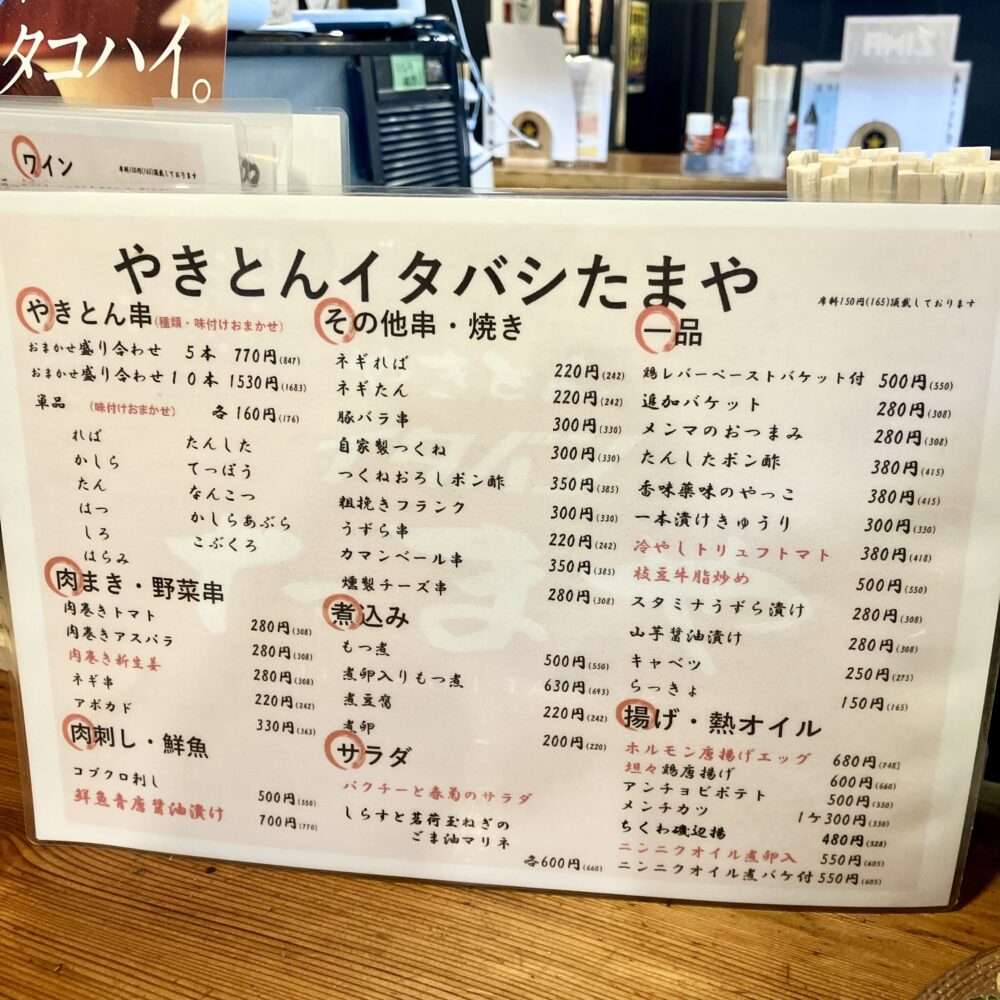 タコハイ。
ワイン
席料150円(165)頂戴しております
ZIMA
やきとんイタバシたまや
席料150円(165)頂戴しております
やきとん串(種類・味付けおまかせ)
おまかせ盛り合わせ 5本 770円(847)
おまかせ盛り合わせ10本 1530円(1683)
単品 (味付けおまかせ) 各160円(176)
れば
かしら
たん
はつ
しろ
はらみ
たんした
てっぽう
なんこつ
かしらあぶら
こぶくろ
肉まき・野菜串
肉巻きトマト 280円(308)
肉巻きアスパラ 280円(308)
肉巻き新生姜 280円(308)
ネギ串 220円(242)
アボカド 330円(363)
肉刺し・鮮魚
コブクロ刺し 500円(550)
鮮魚青唐醤油漬け 700円(770)
その他串・焼き
ネギれば 220円(242)
ネギたん 220円(242)
豚バラ串 300円(330)
自家製つくね 300円(330)
つくねおろしポン酢 350円(385)
粗挽きフランク 300円(330)
うずら串 220円(242)
カマンベール串 350円(385)
燻製チーズ串 280円(308)
煮込み
もつ煮 500円(550)
煮卵入りもつ煮 630円(693)
煮豆腐 220円(242)
煮卵 200円(220)
サラダ
パクチーと春菊のサラダ
しらすと茗荷玉ねぎの
ごま油マリネ
各600円(660)
一品
鶏レバーペーストバケット付 500円(550)
追加バケット 280円(308)
メンマのおつまみ 280円(308)
たんしたポン酢 380円(415)
香味薬味のやっこ 380円(415)
一本漬けきゅうり 300円(330)
冷やしトリュフトマト 380円(418)
枝豆牛脂炒め 500円(550)
スタミナうずら漬け 280円(308)
山芋醤油漬け 280円(308)
キャベツ 250円(275)
らっきょ 150円(165)
揚げ・熱オイル
ホルモン唐揚げエッグ 680円(748)
坦々鶏唐揚げ 600円(660)
アンチョビポテト 500円(550)
メンチカツ 1ケ300円(330)
ちくわ磯辺揚 480円(528)
ニンニクオイル煮卵入 550円(605)
ニンニクオイル煮バケ付 550円(605)